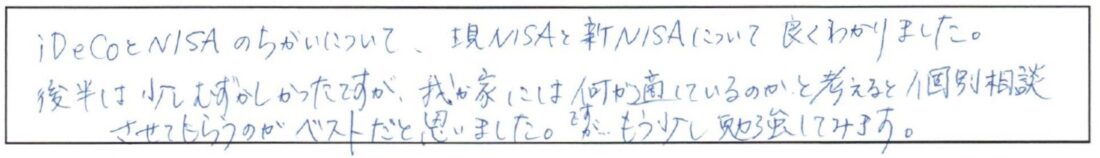 iDeCoとNISAのちがいについて、現NISAと新NISAについて良くわかりました。
後半は少しむずかしかったですが、我が家には何が適しているのかと考えると個別相談
させてもらうのがベストだと思いました。ですが、もう少し勉強してみます。